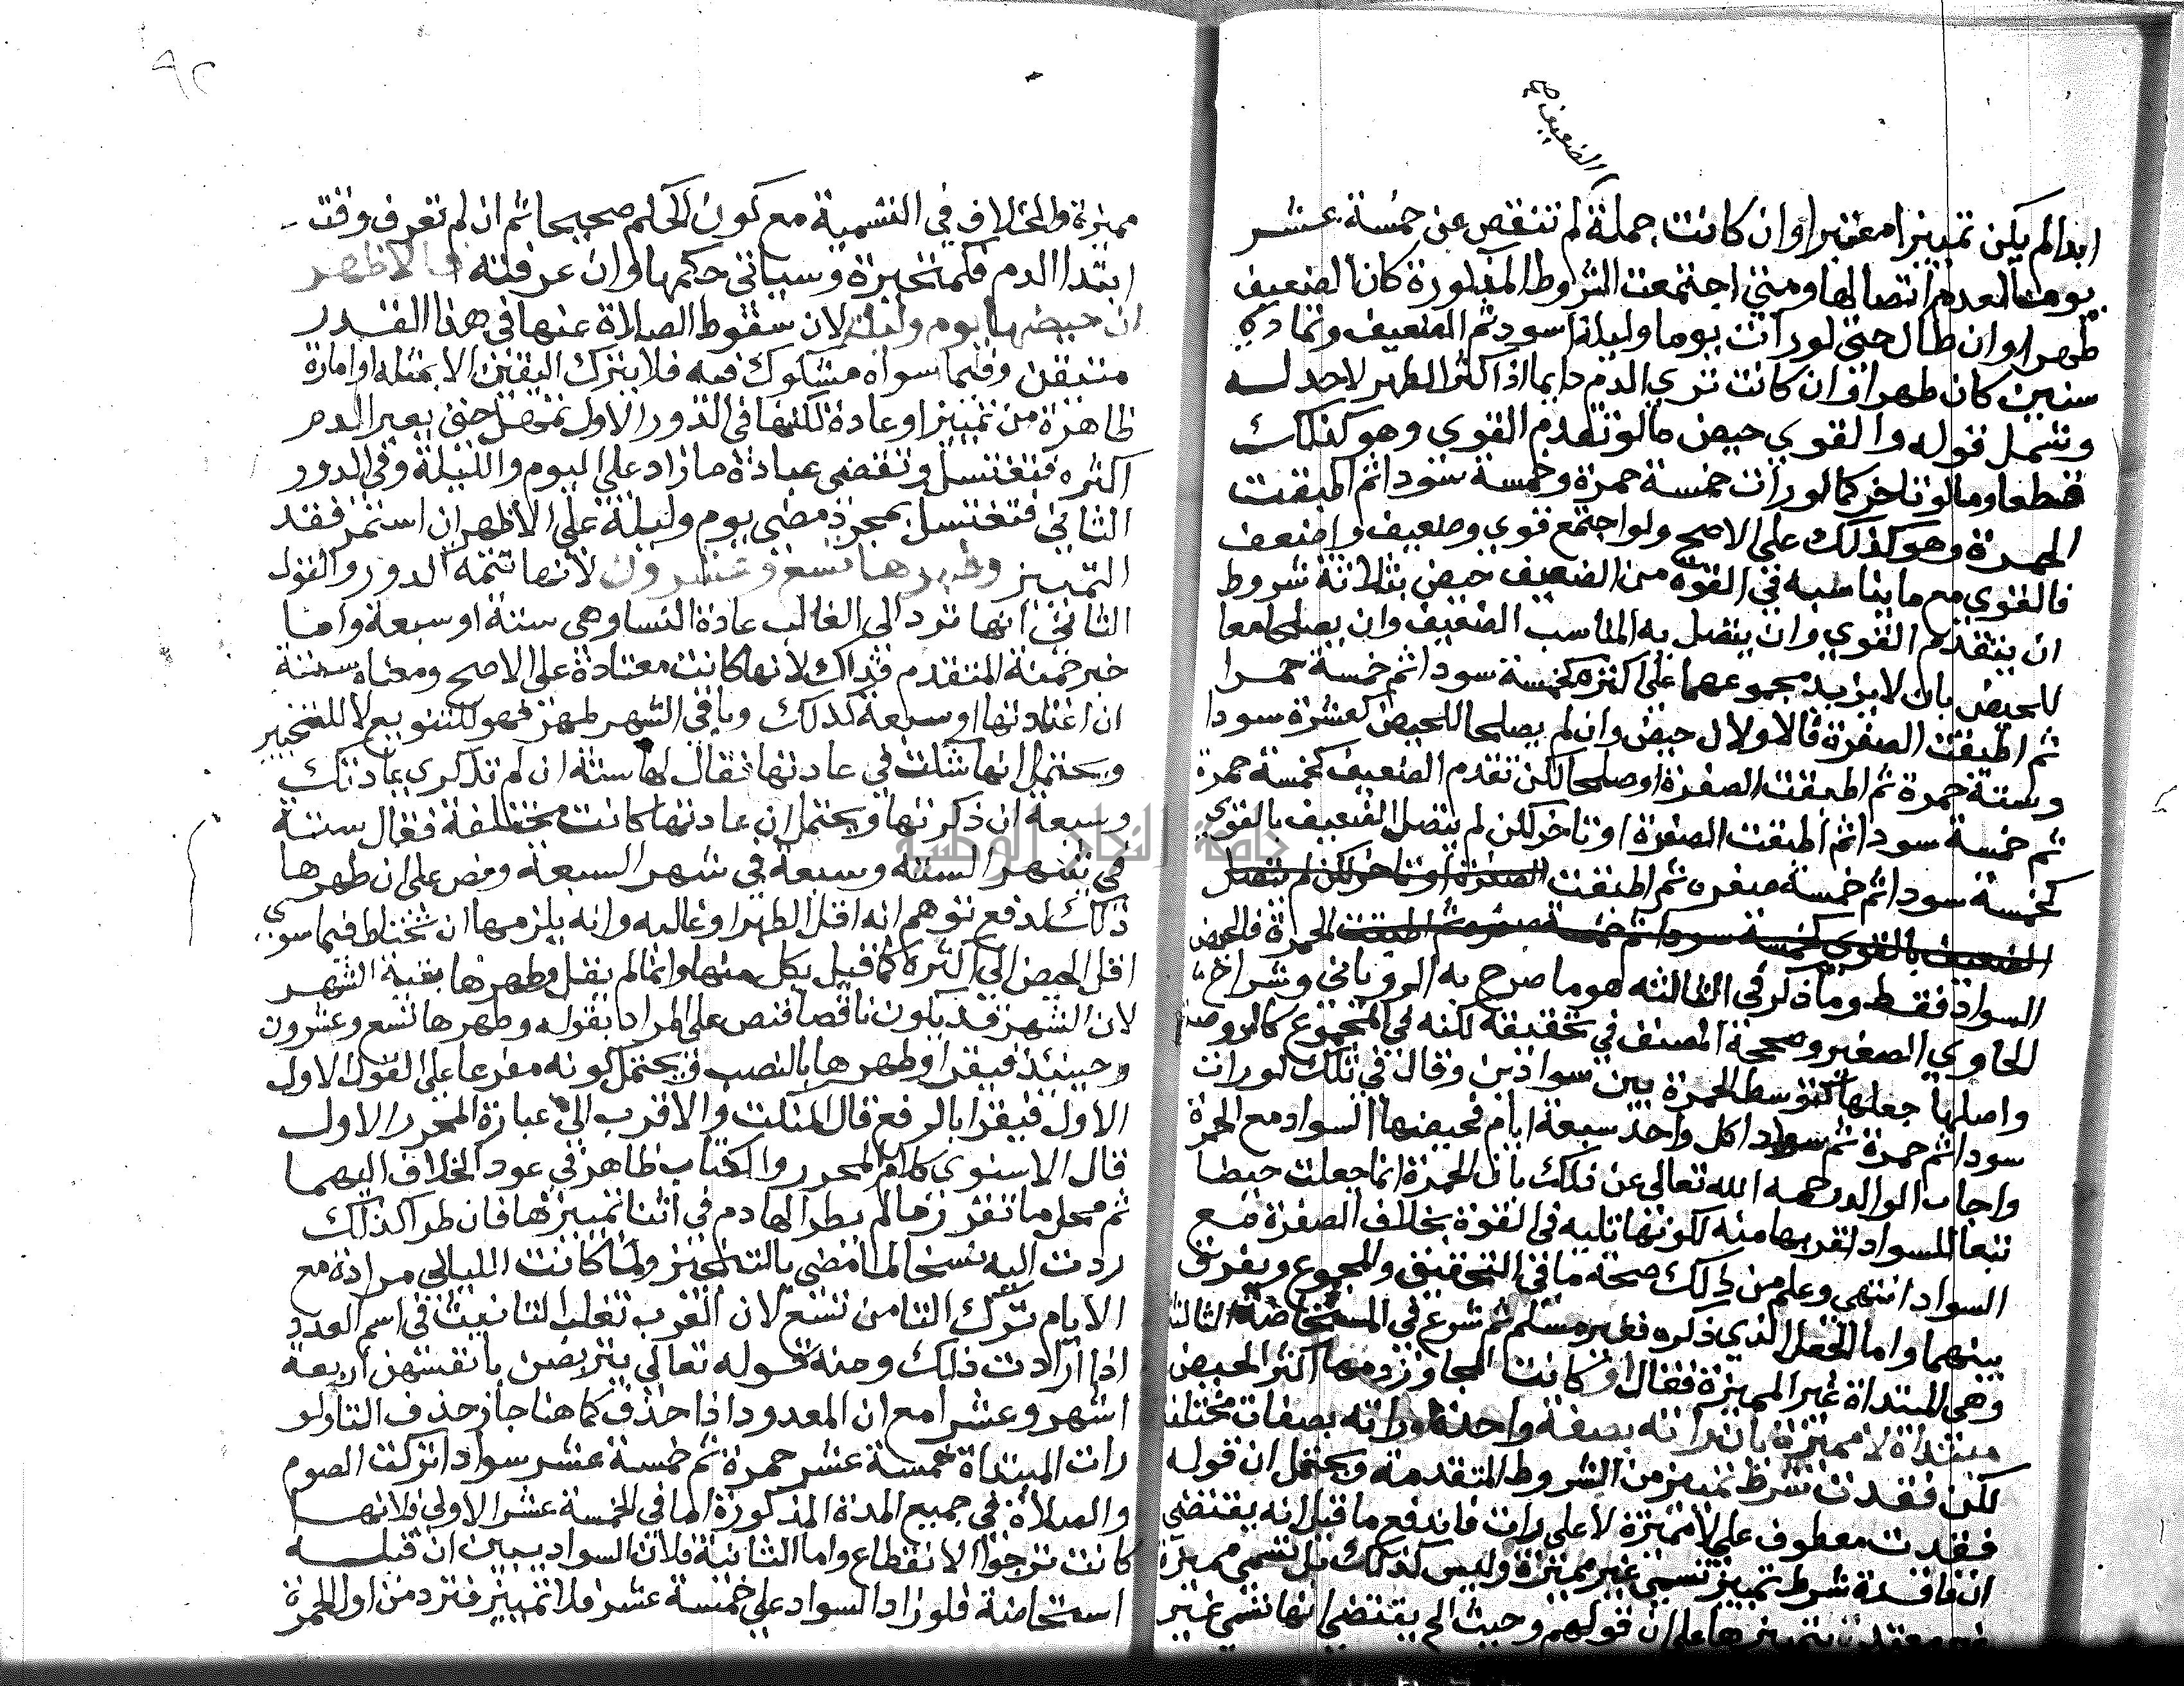 الضعيف صح
ابدا لم يكن تمييزا معتبرا وان كانت جملة لم تنقص عن خمسة عشر
يوما لعدم اتصالها ومتي اجتمعت الشروط المذكورة كان الضعيف
طهرا وان طال حتي لو رات يوما وليلة اسود ثم الضعيف وتمادي
سنين كان طهرا وان كانت تري الدم دايما اذ اكثر الطهر لا حد له
وشمل قوله والقوي حيض ما لو تقدم القوي وهو كذلك
قطعا وما لو تاخر كما لو رات خمسة حمرة وخمسة سوادا ثم اطبقت
الحمرة وهو كذلك علي الاصح ولو اجتمع قوي وضعيف واضعف
فالقوي مع ما يناسبه في القوة من الضعيف حيض بثلاثة شروط
ان يتقدم القوي وان يتصل به المناسب الضعيف وان يصلحا معا
للحيض بان لا يزيد مجموعهما علي اكثره كخمسة سوادا ثم خمسة حمرا
ثم اطبقت الصفرة فالاولان حيض وان لم يصلحا للحيض كعشرة سودا
وستة حمرة ثم اطبقت الصفرة او صلحا لكن تقدم الضعيف كخمسة حمرة
ثم خمسة سودا ثم اطبقت الصفرة او تاخر لكن لم يتصل الضعيف بالقوي
كخمسة سودا ثم خمسة صفره ثم اطبقت الصفرة او تاخر لكن لم يتصل
الضعيف بالقوي كخمسة سودا ثم خمسة صفره ثم اطبقت الحمرة فالحيض
السواد فقط وما ذكر في الثالثه هو ما صرح به الروياني وشراح
الحاوي الصغير وصححه المصنف في تحقيقه لكنه في المجموع كالروضة
واصلها جعلها كتوسط الحمرة بين سوادين وقال في تلك لو رات
سودا ثم حمرة ثم سوادا كل واحد سبعة ايام فحيضها السواد مع الحمرة
واجاب الوالد رحمه الله تعالي عن ذلك بان الحمرة انما جعلت حيضا
تبعا للسواد لقربها منه لكونها تليه في القوة بخلاف الصفرة مع
السواد انتهي وعلم من ذلك صحة ما في التحقيق والمجموع ويفرق
بينهما واما الجعل الذي ذكره فغير مسلم ثم شرع في المستحاضة الثالثة
وهي المبتداة غير المميزة فقال او كانت المجاوز دمها اكثر الحيض
مبتداة لا مميزة بان راته بصفة واحدة او راته بصفات مختلفة
لكن فقدت شرط تمييز من الشروط المتقدمة ويحتمل ان قوله
فقدت معطوف علي لا مميزة لا علي رات فاندفع ما قيل انه يقتضي
ان فاقدة شرط تمييز تسمي غير مميزة وليس كذلك بل تسمي مميزة
غير معتد بتمييزها علي ان قولهم وحيث الخ يقتضي انها تسمي غير
٩٢
مميزة والخلاف في التسمية مع كون الحكم صحيحا ثم ان لم تعرف وقت
ابتدا الدم فكمتحيرة وسياتي حكمها وان عرفته فالاظهر
ان حيضها يوم وليلة لان سقوط الصلاة عنها في هذا القدر
متيقن وفيما سواه مشكوك فيه فلا يترك اليقين الا بمثله او امارة
ظاهرة من تمييز او عادة لكنها في الدور الاول تمهل حتي يعبر الدم
اكثره فتغتسل وتقضي عبادة ما زاد علي اليوم والليلة وفي الدور
الثاني فتغتسل بمجرد مضي يوم وليلة علي الاظهر ان استمر فقد
التمييز وطهرها تسع وعشرون لانها تتمة الدور والقول
الثاني انها ترد الي الغالب عادة النسا وهي ستة او سبعة واما
خبر حمنة المتقدم فذاك لانها كانت معتادة علي الاصح ومعناه ستة
ان اعتادتها او سبعة كذلك وباقي الشهر طهر فهو للتنويع لا للتخيير
ويحتمل انها شكت في عادتها فقال لها ستة ان لم تذكري عادتك
وسبعة ان ذكرتها ويحتمل ان عادتها كانت مختلفة فقال ستة
في شهر الستة وسبعة في شهر السبعة ونص علي ان طهرها
ذلك لدفع توهم انه اقل الطهر او غالبه وانه يلزمها ان تحتاط فيما سوي
اقل الحيض الي اكثره كما قيل بكل منها وانما لم يقل وطهرها بقية الشهر
لان الشهر قد يكون ناقصا فنص علي المراد بقوله وطهرها تسع وعشرون
وحينئذ فيقرا وطهرها بالنصب ويحتمل كونه مفرعا علي القول الاول
الاول فيقرا بالرفع قال المنكت والاقرب الي عبارة المحرر الاول
قال الاسنوي كلام المحرر والكتاب ظاهر في عود الخلاف اليهما
ثم محل ما تقرر ما لم يطرا لها دم في اثنا تمييزها فان طرا كذلك
ردت اليه نسخا لما مضي بالتمييز ولما كانت الليالي مرادة مع
الايام ترك التا من تسع لان العرب تغلب التانيث في اسم العدد
اذا ارادت ذلك ومنه قوله تعالي يتربصن بانفسهن اربعة
اشهر وعشرا مع ان المعدود اذا حذف كما هنا جاز حذف التا ولو
رات المبتداة خمسة عشر حمرة ثم خمسة عشر سوادا تركت الصوم
والصلاة في جميع المدة المذكورة اما في الخمسة عشر الاولي فلانها
كانت ترجوا الانقطاع واما الثانية فلان السواد يبين ان قبله
استحاضة فلو زاد السواد علي خمسة عشر فلا تمييز فترد من اول الحمرة
جامعة النجاح الوطنية